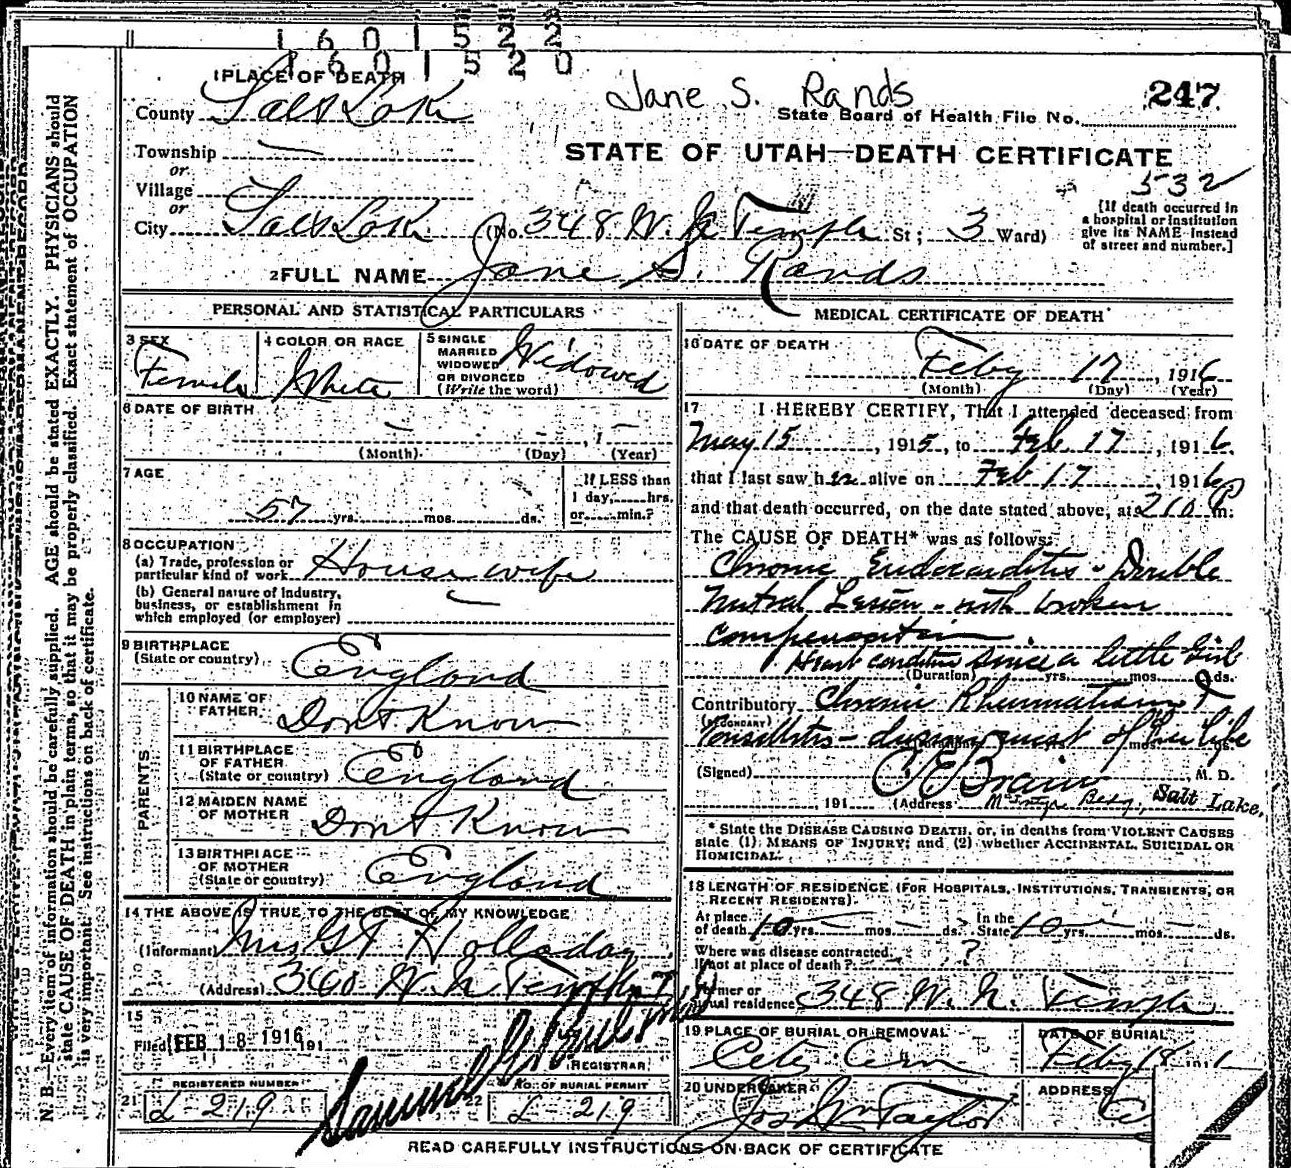 1 6 0 1 5 2 2
1 6 0 1 5 2 0
1 PLACE OF DEATH
County Salt Lake
Jane S. Rands
247
State Board of Health File No.
Township —
or
Village
or
City Salt Lake (No. 348 W. N. Temple St; 3 Ward)
STATE OF UTAH—DEATH CERTIFICATE
532
[If death occurred in a hospital or institution give its NAME instead of street and number.]
2 FULL NAME Jane S. Rands
PERSONAL AND STATISTICAL PARTICULARS
3 SEX Female
4 COLOR OR RACE White
5 SINGLE MARRIED WIDOWED OR DIVORCED (Write the word) Widowed
6 DATE OF BIRTH — — , 1 —
(Month) (Day) (Year)
7 AGE
57 yrs. mos. ds.
If LESS than 1 day, hrs. or min.?
8 OCCUPATION
(a) Trade, profession or particular kind of work House wife
(b) General nature of industry, business, or establishment in which employed (or employer) —
9 BIRTHPLACE (State or country) England
PARENTS
10 NAME OF FATHER Dont Know
11 BIRTHPLACE OF FATHER (State or country) England
12 MAIDEN NAME OF MOTHER Dont Know
13 BIRTHPLACE OF MOTHER (State or country) England
14 THE ABOVE IS TRUE TO THE BEST OF MY KNOWLEDGE
(Informant) Mrs G T Holladay
(Address) 360 W. N Temple
15
Filed FEB 18 1916 191
REGISTRAR
21 REGISTERED NUMBER L-219
22 NO. OF BURIAL PERMIT L-219
MEDICAL CERTIFICATE OF DEATH
16 DATE OF DEATH
Feby 17, 1916
(Month) (Day) (Year)
17 I HEREBY CERTIFY, That I attended deceased from
May 15, 1915, to Feb. 17, 1916,
that I last saw her alive on Feb 17, 1916,
and that death occurred, on the date stated above, at 210 P m.
The CAUSE OF DEATH* was as follows:
Chronic Endocarditis - Double
Mitral Lesion - with broken
compensation
Heart condition since a little Girl
(Duration) yrs. mos. ds.
Contributory Chronic Rheumatism &
(SECONDARY)
Tonsillitis - during most of her life
(Signed) M. D.
191 (Address) McIntyre Bldg., Salt Lake.
* State the DISEASE CAUSING DEATH, or, in deaths from VIOLENT CAUSES state (1) MEANS OF INJURY; and (2) whether ACCIDENTAL, SUICIDAL OR HOMICIDAL.
18 LENGTH OF RESIDENCE (FOR HOSPITALS, INSTITUTIONS, TRANSIENTS, OR RECENT RESIDENTS).
At place of death 10 yrs. — mos. — ds. In the State 10 yrs. — mos. — ds.
Where was disease contracted, if not at place of death? ?
Former or usual residence 348 W. N. Temple
19 PLACE OF BURIAL OR REMOVAL City Cem
DATE OF BURIAL Feby 18 191
20 UNDERTAKER Jos Wm Taylor
ADDRESS
READ CAREFULLY INSTRUCTIONS ON BACK OF CERTIFICATE
N. B.—Every item of information should be carefully supplied. AGE should be stated EXACTLY. PHYSICIANS should
state CAUSE OF DEATH in plain terms, so that it may be properly classified. Exact statement of OCCUPATION
is very important. See instructions on back of certificate.